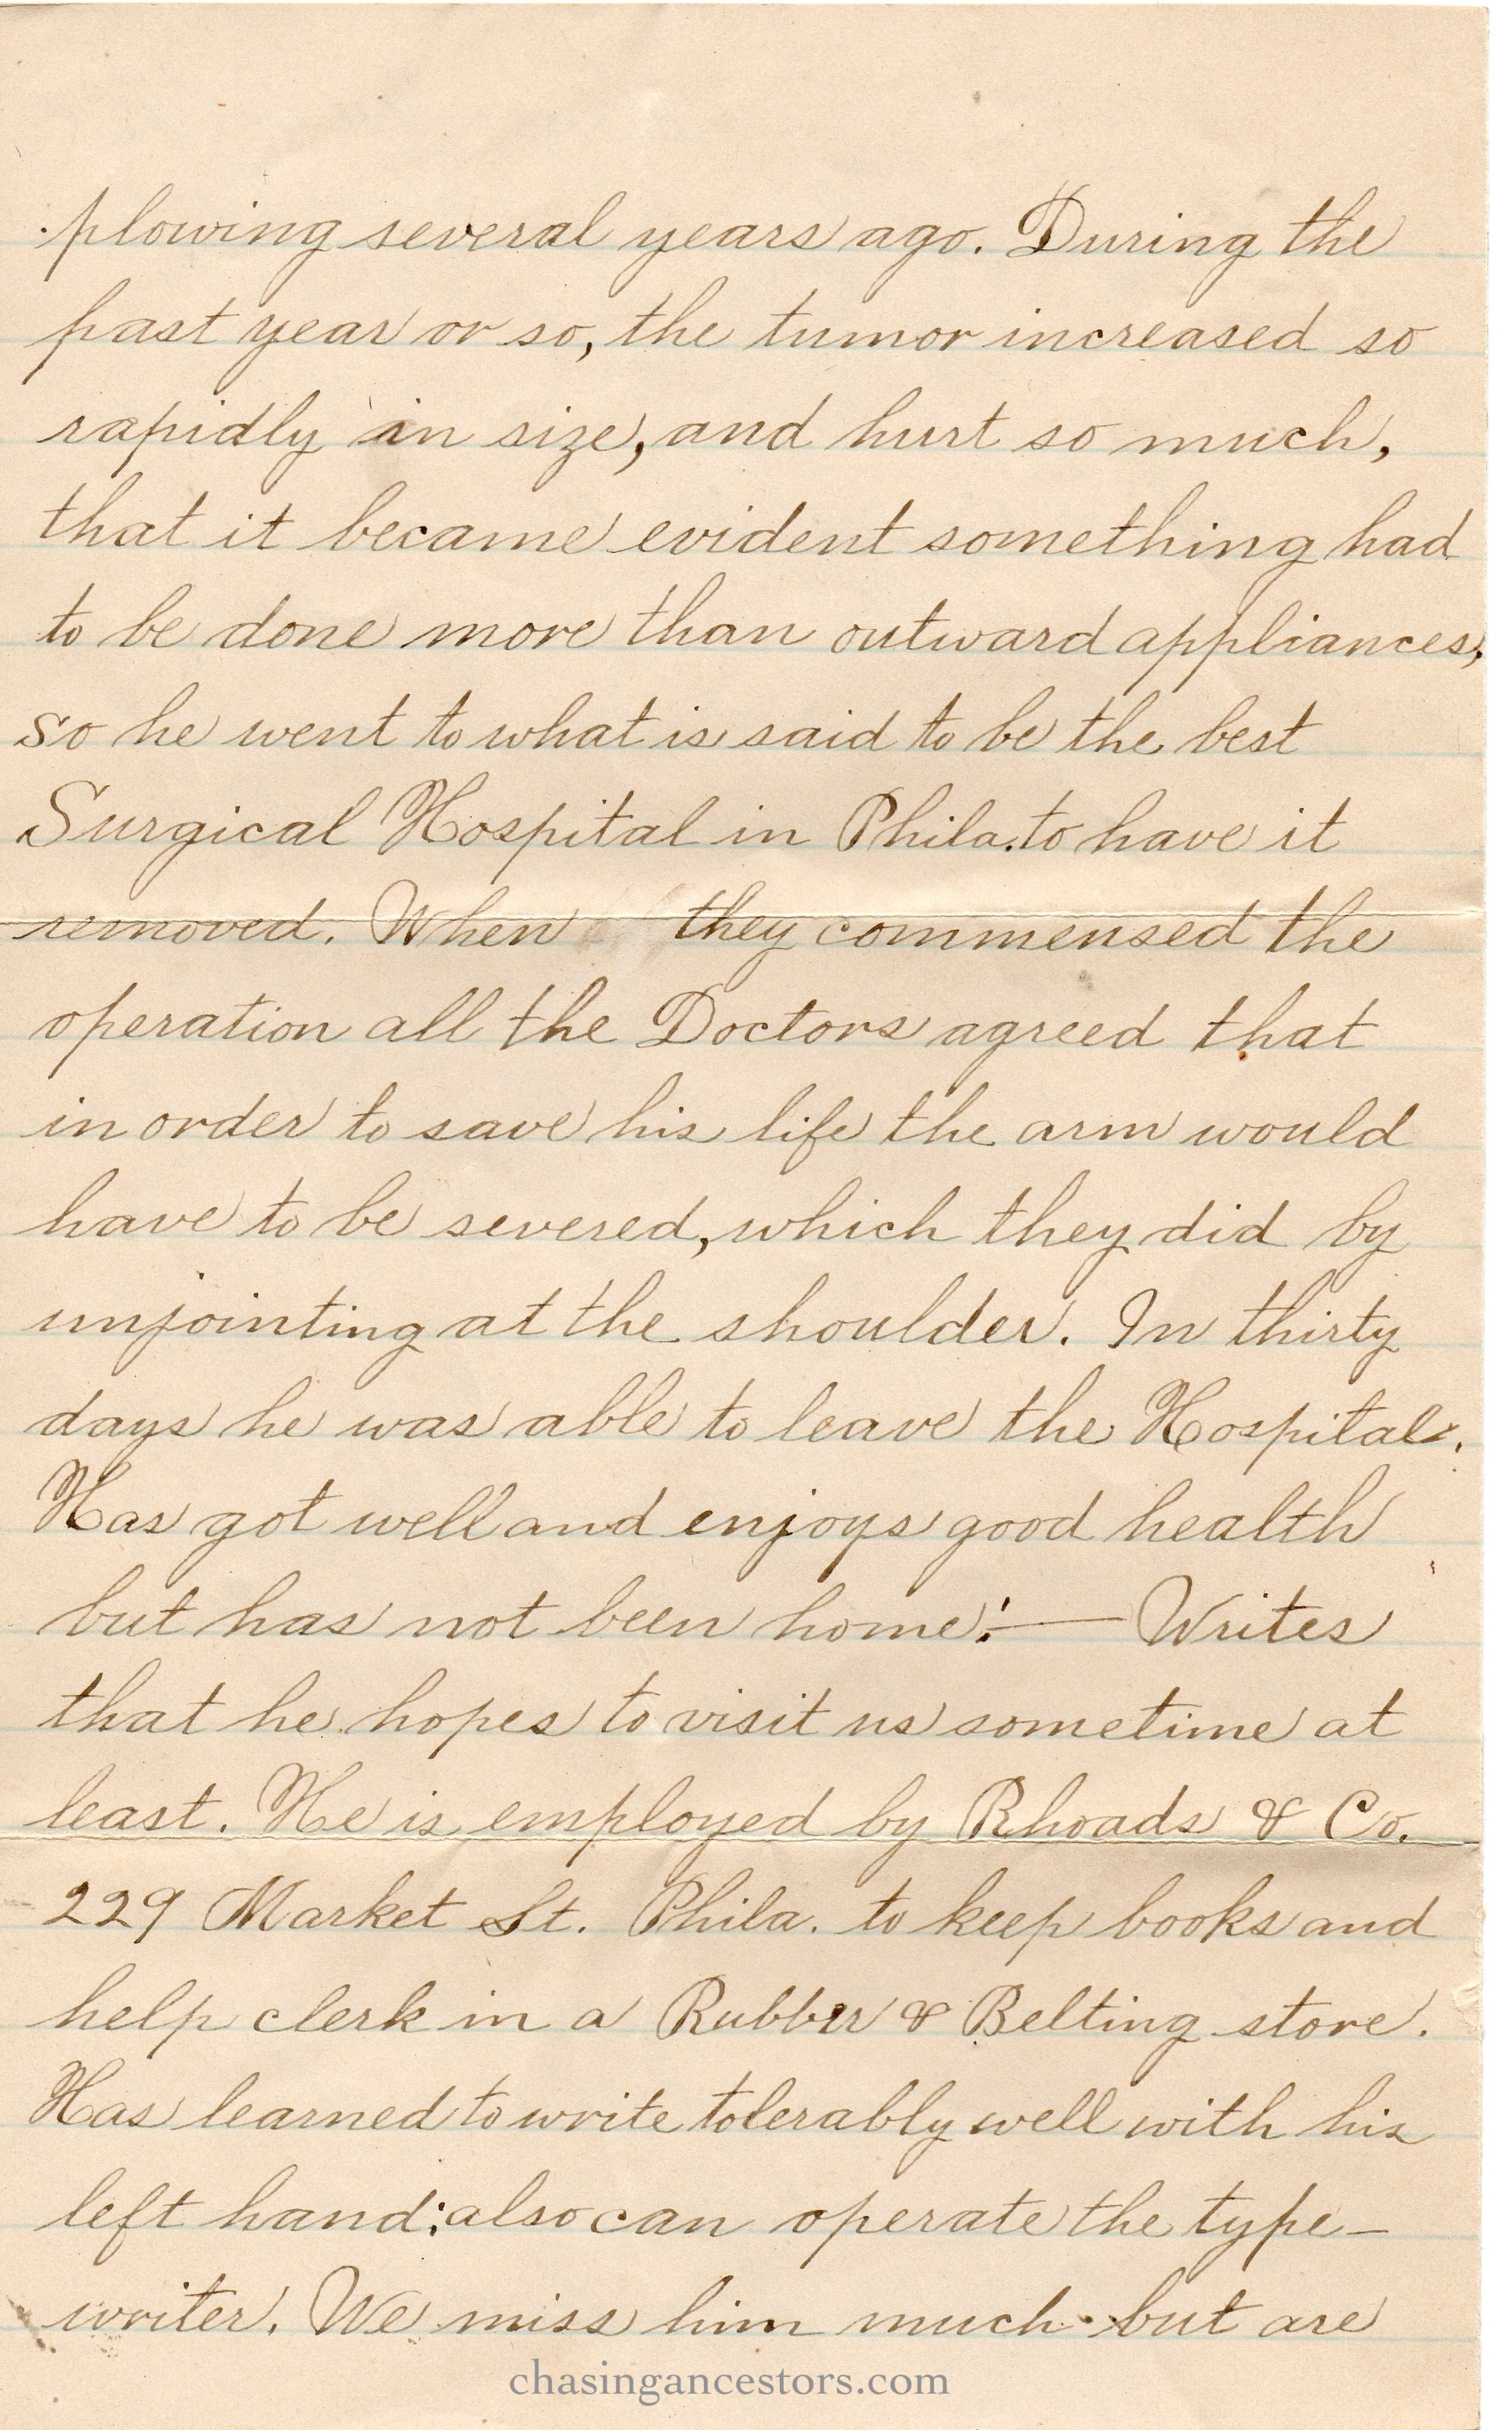 plowing several years ago. During the
past year or so, the tumor increased so
rapidly in size, and hurt so much,
that it became evident something had
to be done more than outward appliances,
so he went to what is said to be the best
Surgical Hospital in Phila. to have it
removed. When they commensed the
operation all the Doctors agreed that
in order to save his life the arm would
have to be severed, which they did by
unjointing at the shoulder. In thirty
days he was able to leave the Hospital.
Has got well and enjoys good health
but has not been home!— Writes
that he hopes to visit us sometime at
least. He is employed by Rhoads & Co.
229 Market St. Phila. to keep books and
help clerk in a Rubber & Belting store.
Has learned to write tolerably well with his
left hand; also can operate the type-
writer. We miss him much but are
chasingancestors.com